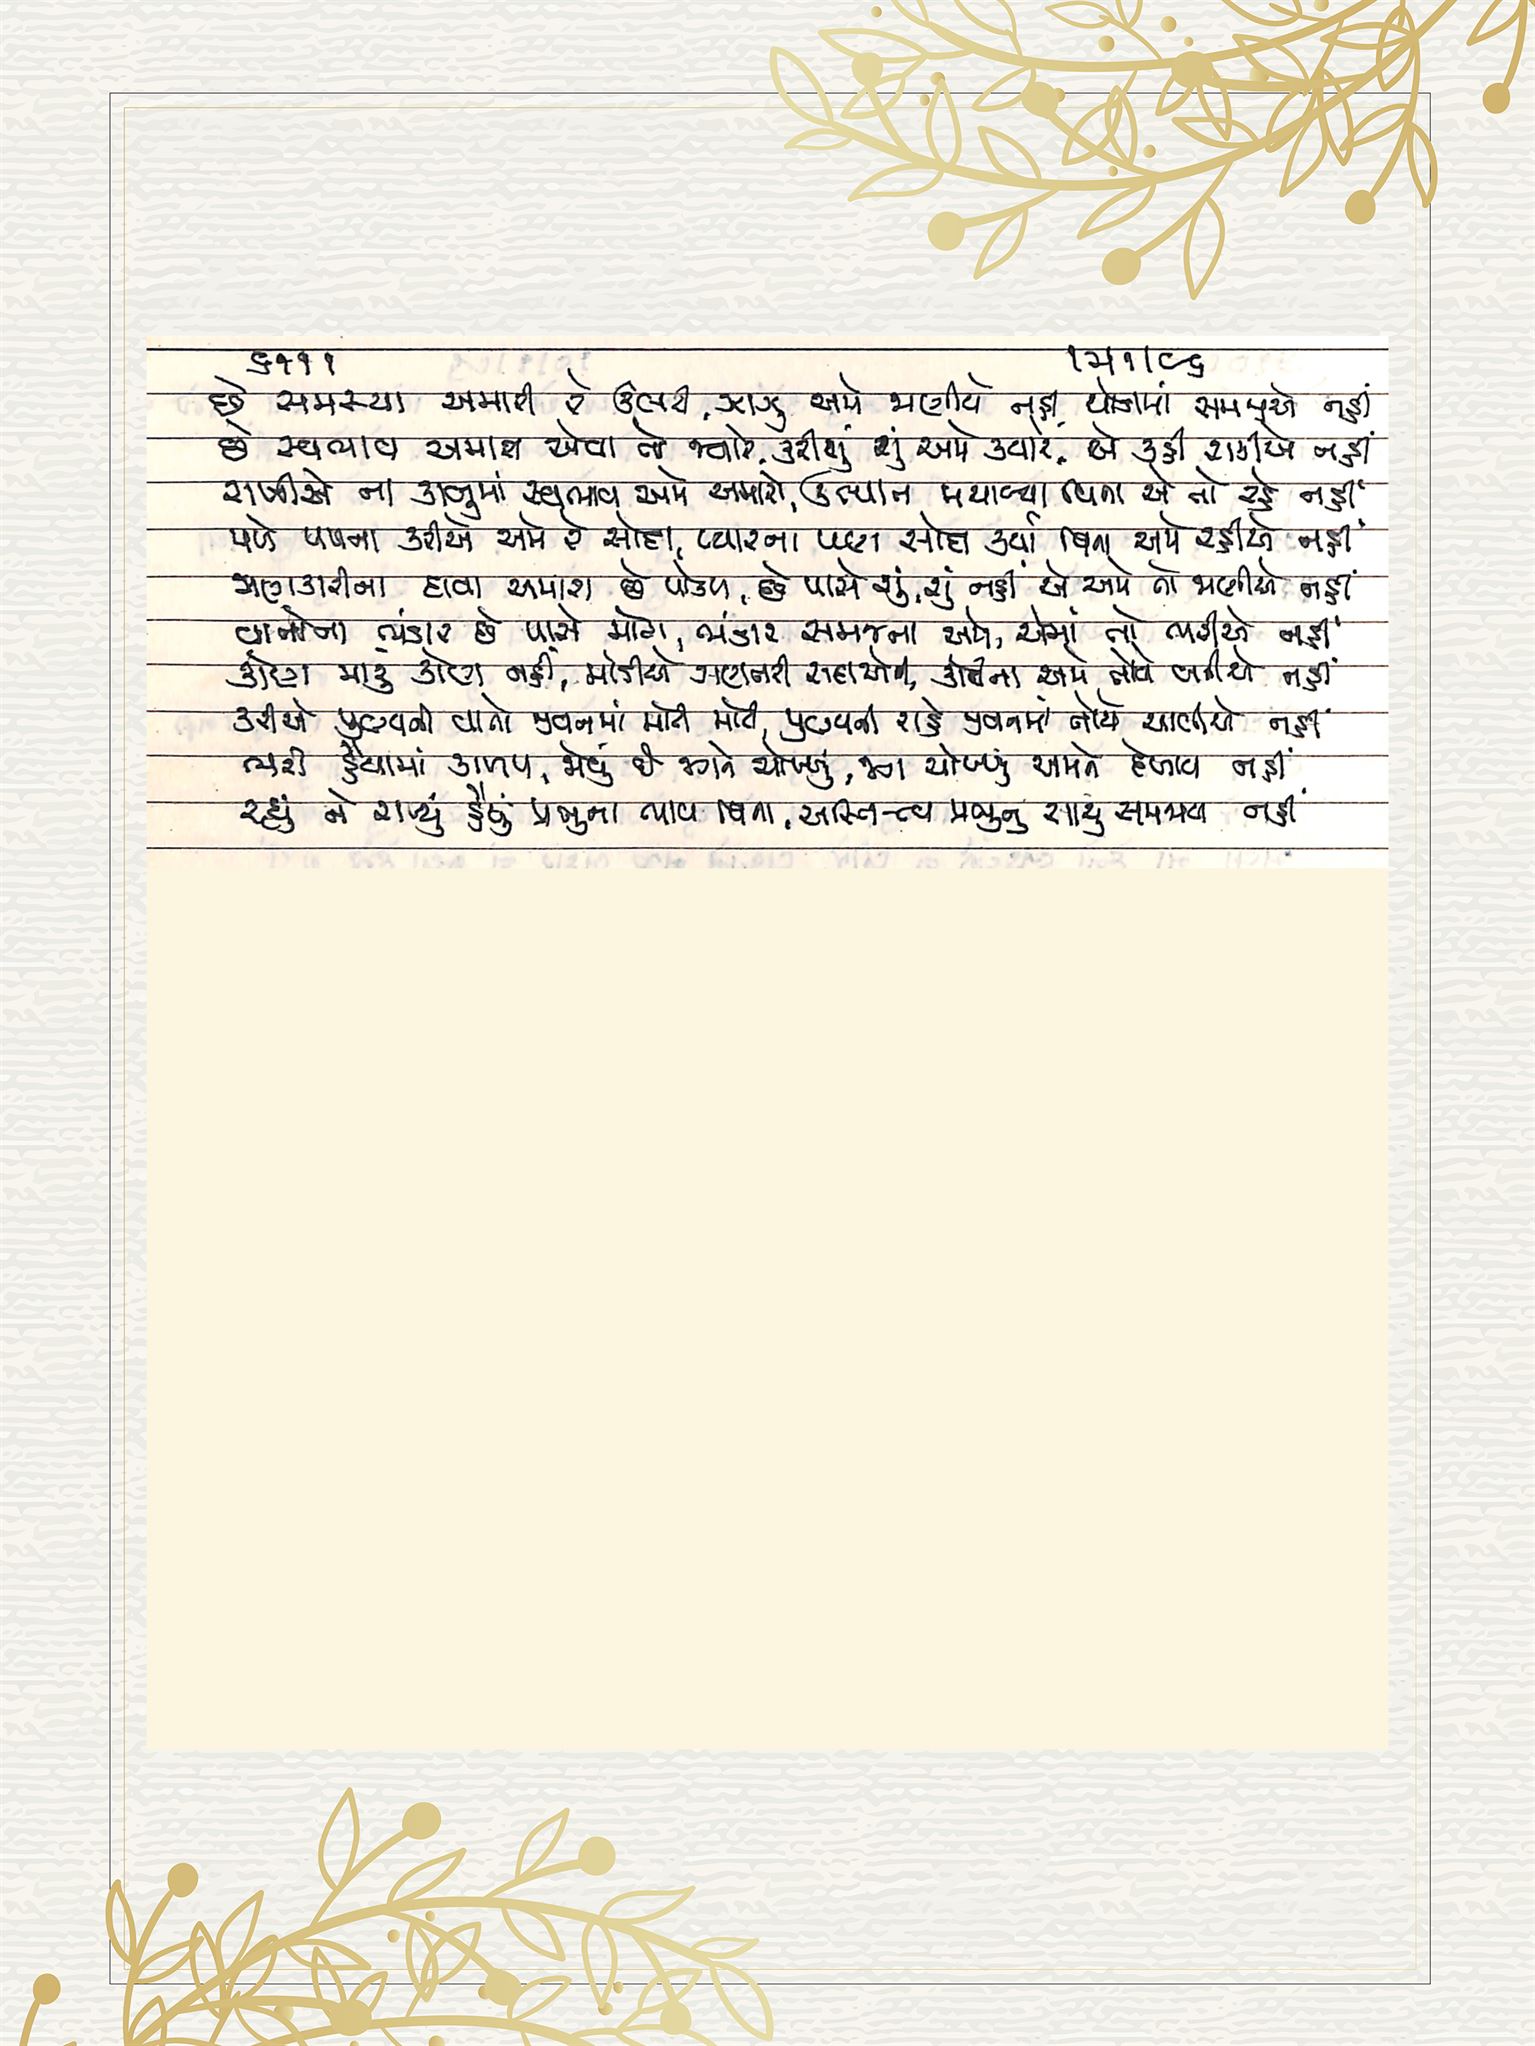 ૬૧૧૧
છે સમસ્યા અમારી રે ઉલટી, ઝાઝુ અમે જાણીયે નહીં, થોડામાં સમજીએ નહીં
છે સ્વભાવ અમારા એવા તો જ્યારે, કરીશું શું અમે ક્યારે, એ કહી શકીએ નહીં
રાખીએ ના કાબુમાં સ્વભાવ અમે અમારો, ઉત્પાત મચાવ્યા વિના એ તો રહે નહીં
પળે પળના કરીએ અમે રે સોદા, પ્યારના પણ સોદા કર્યા વિના અમે રહીએ નહીં
જાણકારીના દાવા અમારા છે પોકળ, છે પાસે શું, શું નહીં એ અમે તો જાણીએ નહીં
વાતોના ભંડાર છે પાસે મોટા, ભંડાર સમજના અમે, એમાં તો ભરીએ નહીં
કોણ મારું કોણ નહીં, માંડીએ ગણતરી સદાએની, કોઈના અમે તોયે બનીએ નહીં
કરીએ પુણ્યની વાતો જીવનમાં મોટી મોટી, પુણ્યની રાહે જીવનમાં તોયે ચાલીએ નહીં
ભરી હૈયામાં કાળપ, જોવું છે જગને ચોખ્ખું, જગ ચોખ્ખું અમને દેખાય નહીં
રહ્યું ને રાખ્યું હૈયું પ્રભુના ભાવ વિના, અસ્તિત્વ પ્રભુનું સાચું સમજાય નહીં